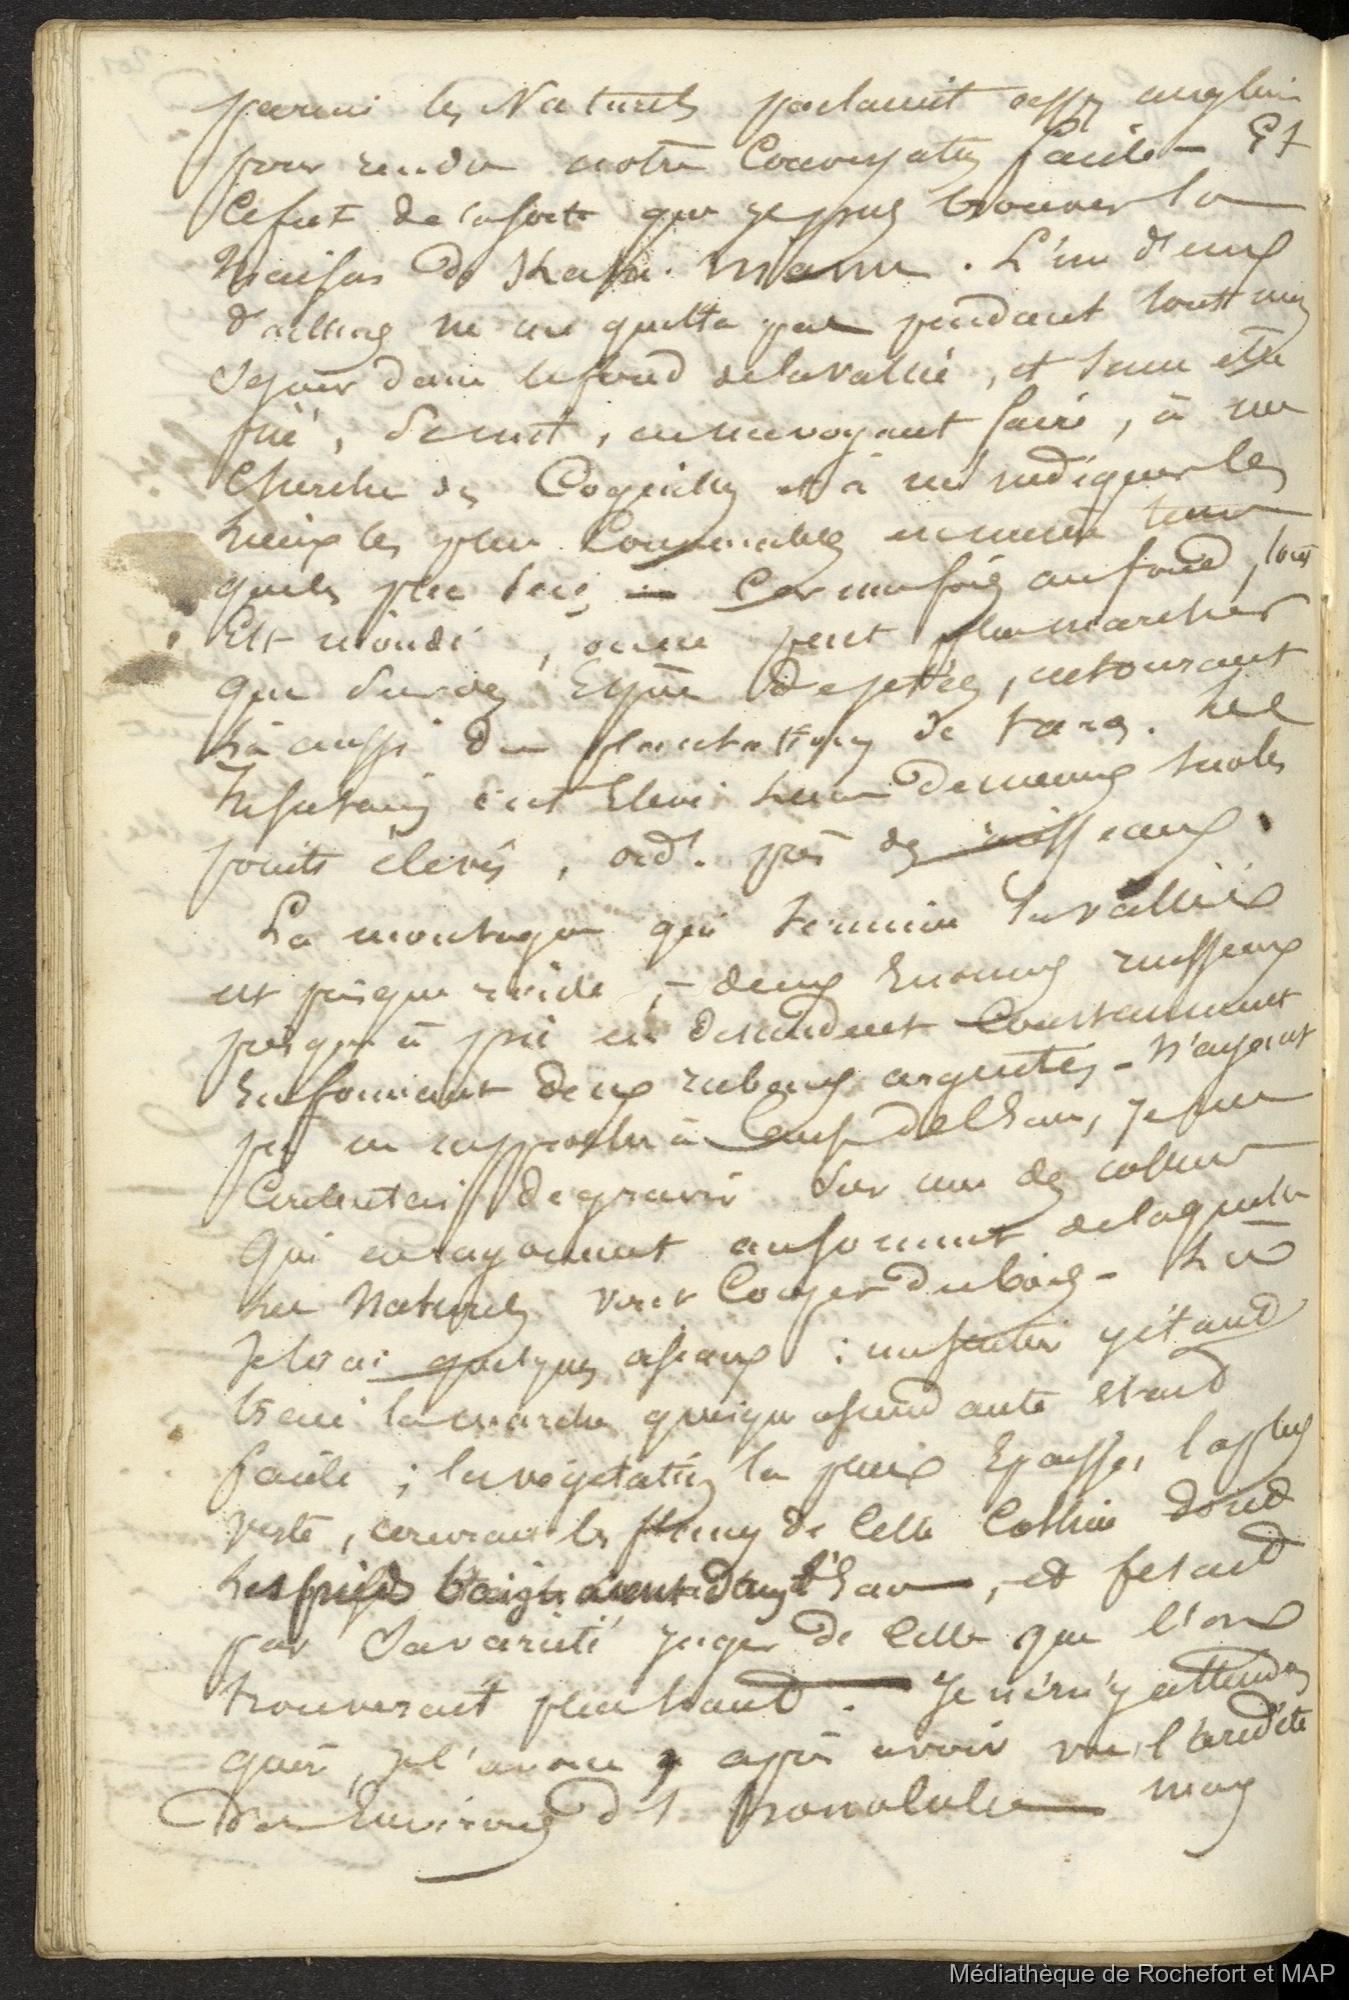 parmi les Naturels parlaient assez anglais
pour rendre notre Conversation facile - Et
Ce fut de la sorte que je pus trouver la
Maison de . L'un d'eux
d'ailleurs ne me quitta pas pendant tout mon
Séjour dans le fond de la vallée, et sans être
prié, se mit, en me voyant faire, à
Chercher des Coquilles et à m'indiquer les
Lieux les plus Convenables
au fond, tout
Est inondé, on ne peut plus marcher
que sur des de jettées, entourant
Là aussi des plantations de taro. Les
Insulaires ont Elevé leurs demeures sur les
points élevés, près des ruisseaux.
La montagne qui termine la vallée
est presque, - deux Enormes ruisseaux
presque à pic en descendent Constamment
En formant deux rubans argentés - N'ayant
pu en approcher à Cause de l'Eau, je me
Contentai de gravir sur une des collines
qui au sommet de laquelle
les Naturels vont Couper du bois - Là
Je tirai quelques oiseaux : un sentier y étant
tracé la marche quoique ascendante était
facile ; la végétation la plus Epaisse, la plus
verte, couvrait les flancs de Cette Colline dont
Les pieds baignaient dans l'Eau, et fesait
par Sa variété juger de Celle que l'on
trouverait plus haut. Je ne m'y attendais
guère, je l'avoue, après avoir vu l'aridité
des Environs d'honolulu mais